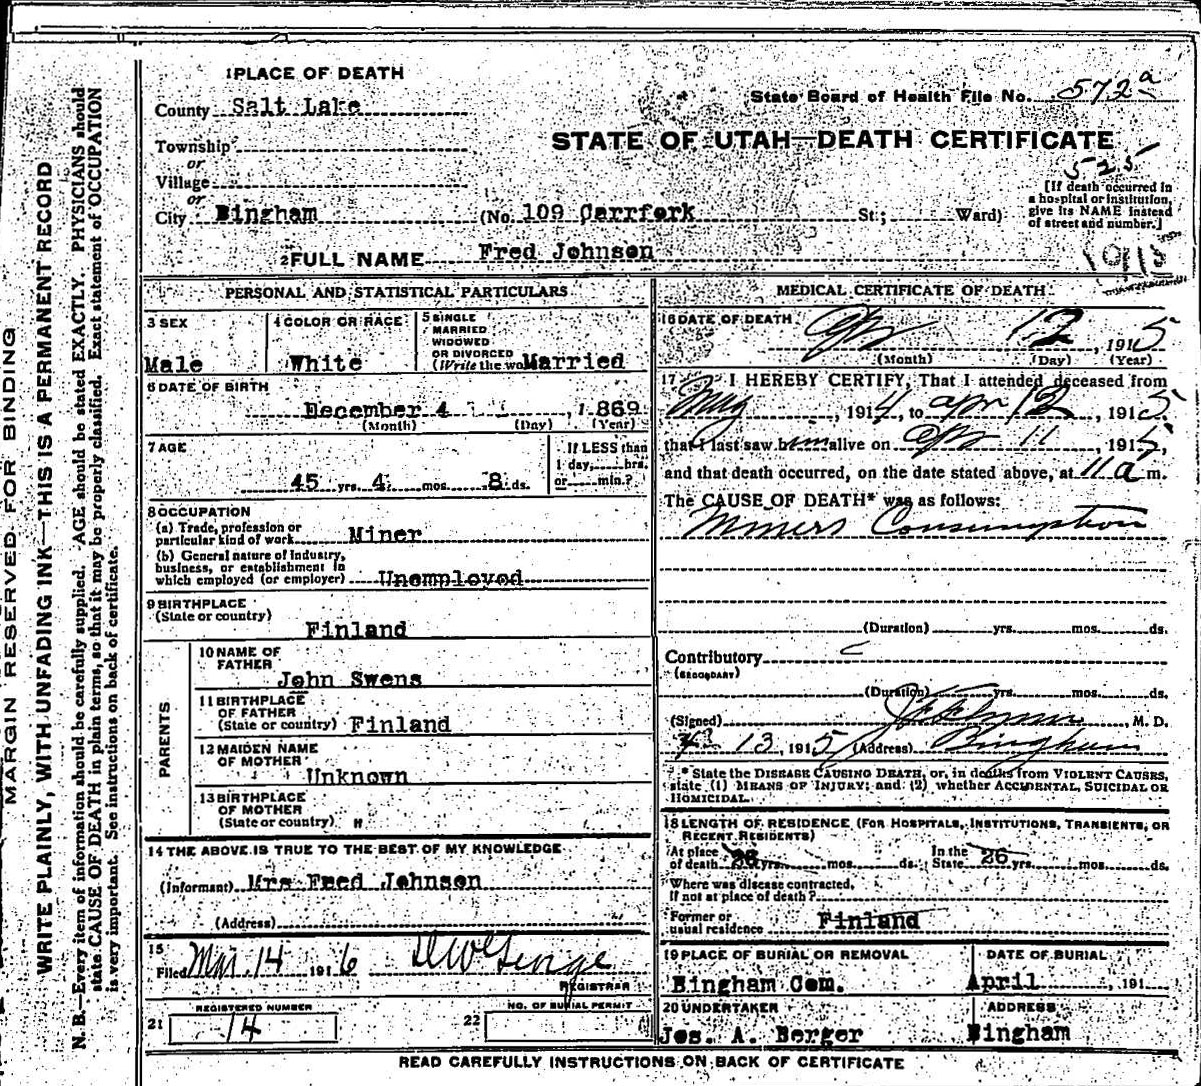 1 PLACE OF DEATH
County Salt Lake
State Board of Health File No. 572a
Township
or
Village
or
STATE OF UTAH—DEATH CERTIFICATE
525
City Bingham (No. 109 Carrfork St; Ward)
[If death occurred in
a hospital or institution,
give its NAME instead
of street and number.]
2 FULL NAME Fred Johnson
PERSONAL AND STATISTICAL PARTICULARS
3 SEX
Male
4 COLOR OR RACE
White
5 SINGLE
MARRIED
WIDOWED
OR DIVORCED
(Write the wo Married
6 DATE OF BIRTH
December 4, 1869
(Month) (Day) (Year)
7 AGE
45 yrs. 4 mos. 8 ds.
If LESS than
1 day, hrs.
or min.?
8 OCCUPATION
(a) Trade, profession or
particular kind of work Miner
(b) General nature of industry,
business, or establishment in
which employed (or employer) Unemployed
9 BIRTHPLACE
(State or country)
Finland
PARENTS
10 NAME OF
FATHER
John Swens
11 BIRTHPLACE
OF FATHER
(State or country) Finland
12 MAIDEN NAME
OF MOTHER
Unknown
13 BIRTHPLACE
OF MOTHER
(State or country) "
14 THE ABOVE IS TRUE TO THE BEST OF MY KNOWLEDGE
(Informant) Mrs Fred Johnson
(Address)
15
Filed Mar. 14 1916
REGISTRAR
REGISTERED NUMBER
21 14
NO. OF BURIAL PERMIT
22
MEDICAL CERTIFICATE OF DEATH
16 DATE OF DEATH
Apr 12, 1915
(Month) (Day) (Year)
17 I HEREBY CERTIFY, That I attended deceased from
, 1914, to apr 12, 1915,
that I last saw him alive on Apr 11, 1915,
and that death occurred, on the date stated above, at 11 a m.
The CAUSE OF DEATH* was as follows:
Miners Consumption
(Duration) yrs. mos. ds.
Contributory
(SECONDARY)
(Duration) yrs. mos. ds.
(Signed) , M. D.
13, 1915 (Address) Bingham
* State the DISEASE CAUSING DEATH, or, in deaths from VIOLENT CAUSES,
state (1) MEANS OF INJURY; and (2) whether ACCIDENTAL, SUICIDAL OR
HOMICIDAL.
18 LENGTH OF RESIDENCE (FOR HOSPITALS, INSTITUTIONS, TRANSIENTS, OR
RECENT RESIDENTS)
At place
of death 26 yrs. mos. ds.
In the
State 26 yrs. mos. ds.
Where was disease contracted,
if not at place of death?
Former or
usual residence Finland
19 PLACE OF BURIAL OR REMOVAL
Bingham Cem.
DATE OF BURIAL
April , 191
20 UNDERTAKER
Jos. A. Berger
ADDRESS
Bingham
READ CAREFULLY INSTRUCTIONS ON BACK OF CERTIFICATE
MARGIN RESERVED FOR BINDING
WRITE PLAINLY, WITH UNFADING INK—THIS IS A PERMANENT RECORD
N. B.—Every item of information should be carefully supplied. AGE should be stated EXACTLY. PHYSICIANS should
state CAUSE OF DEATH in plain terms, so that it may be properly classified. Exact statement of OCCUPATION
is very important. See instructions on back of certificate.